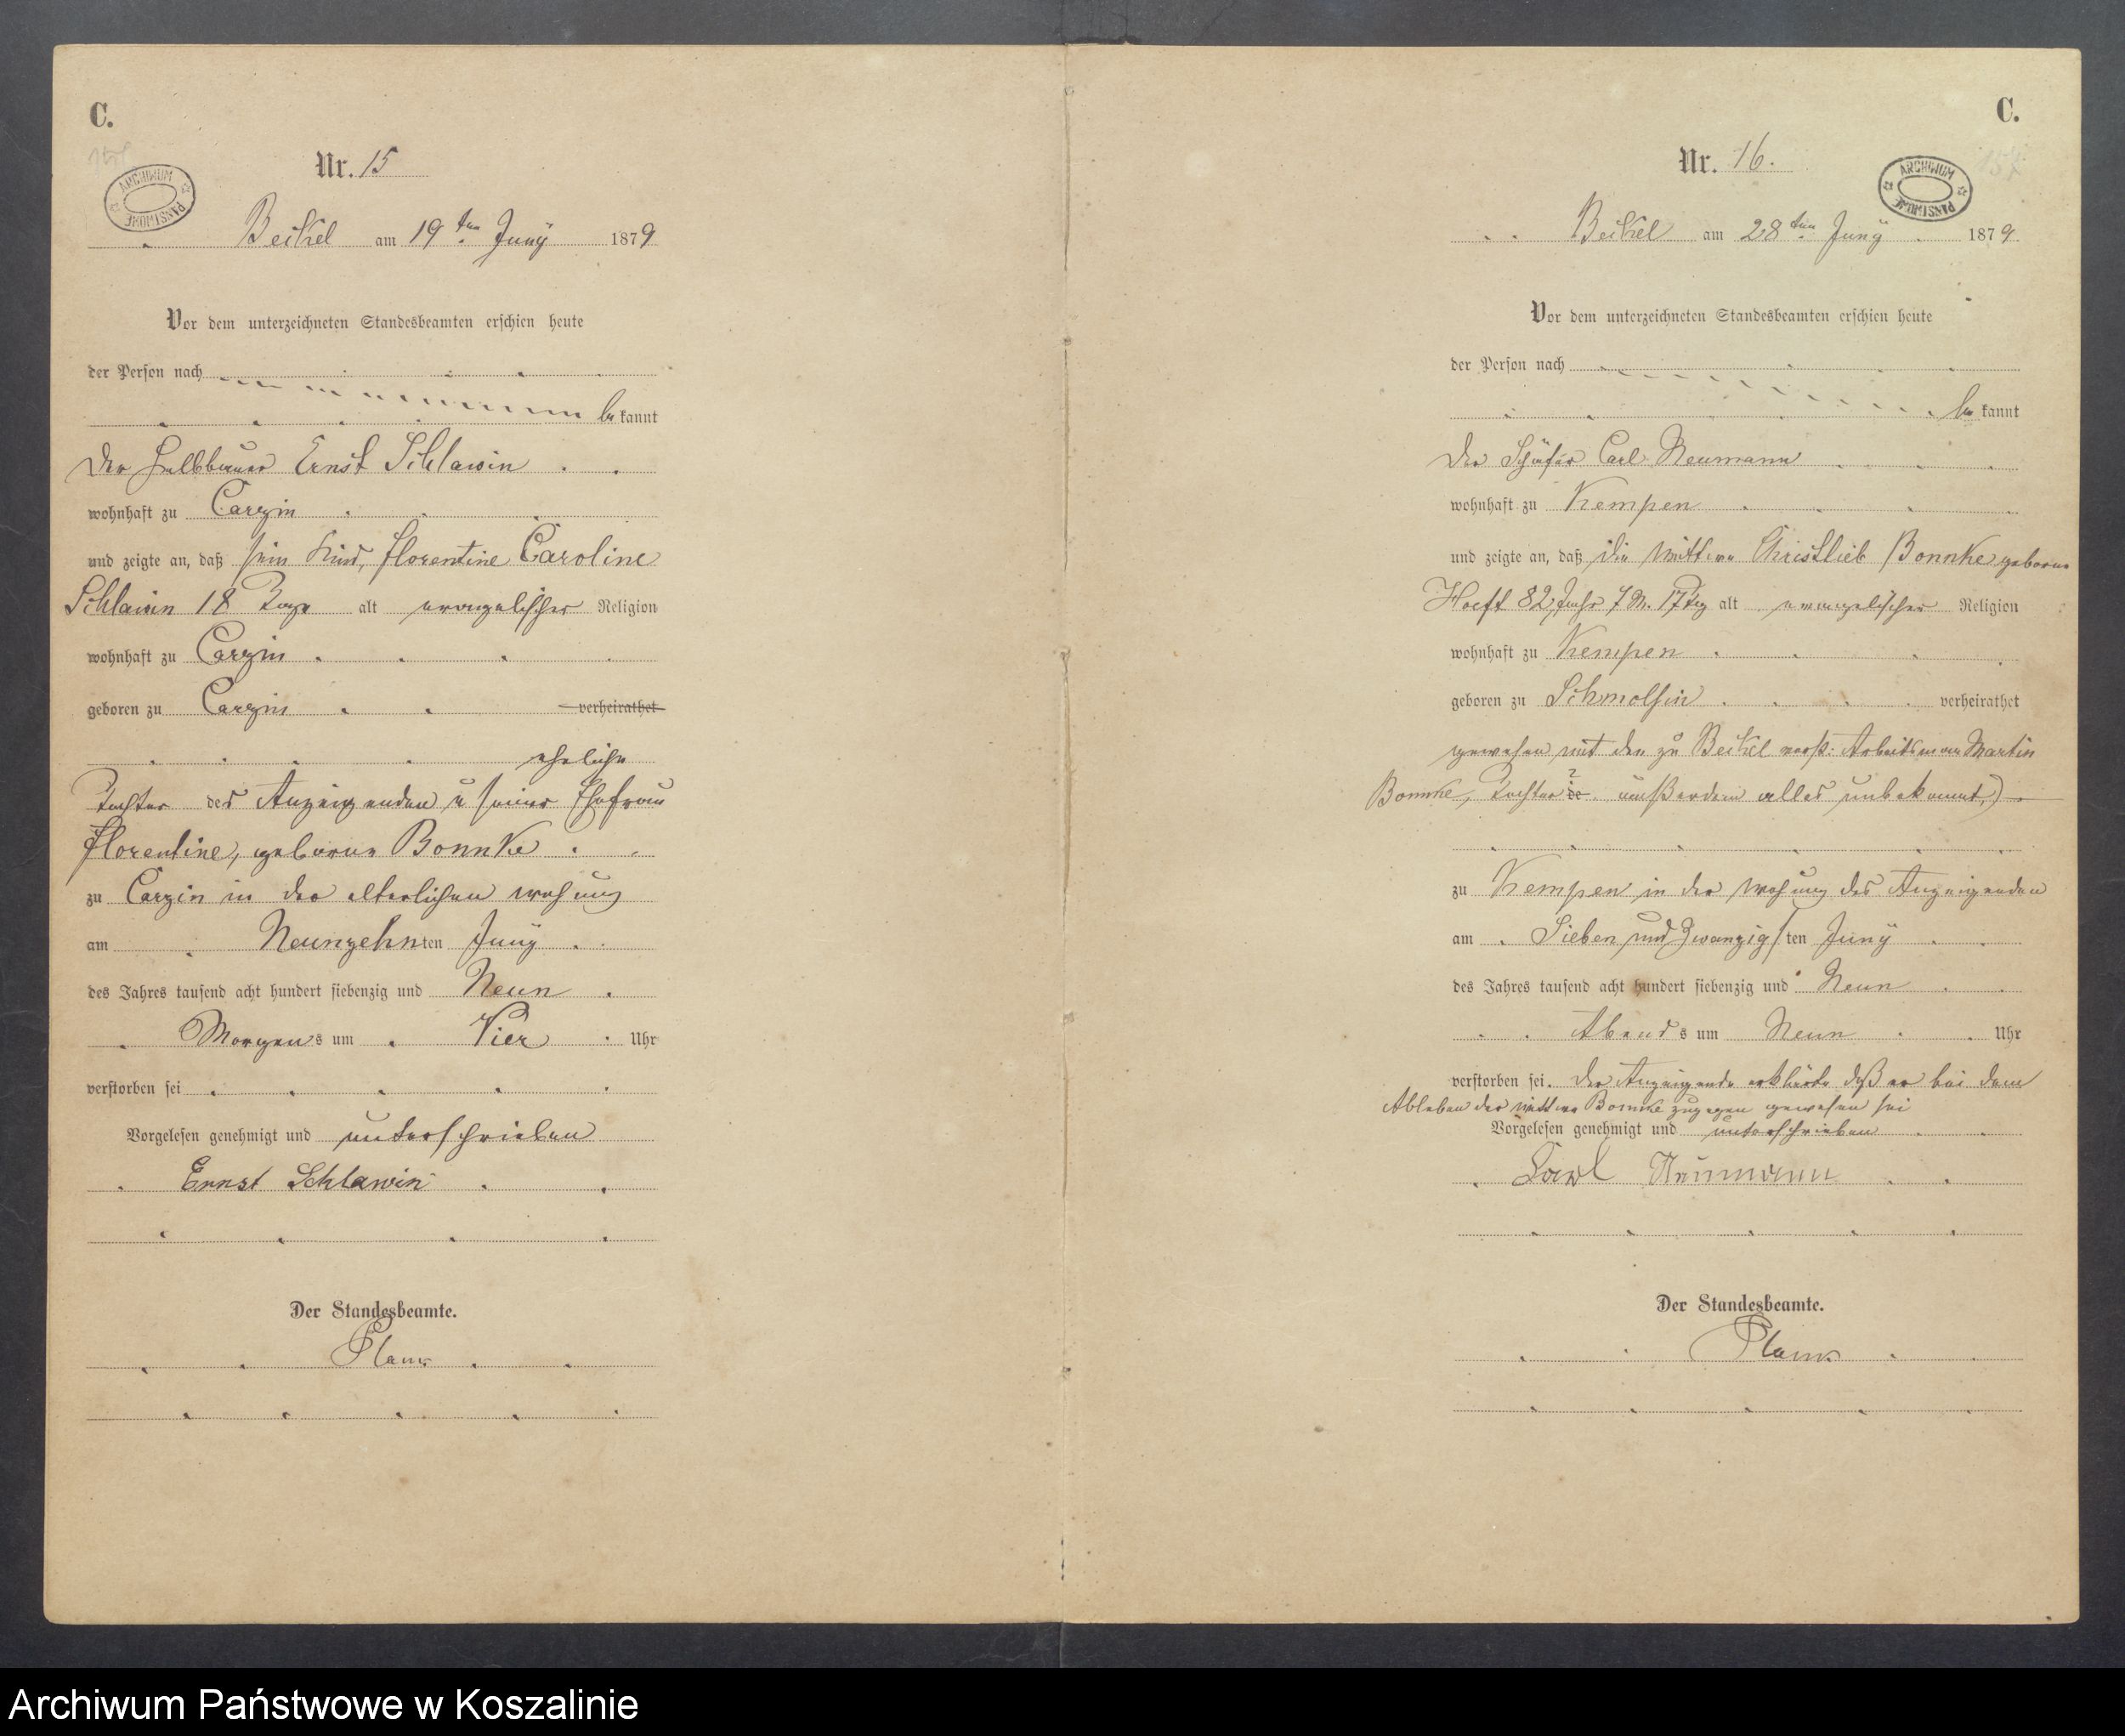 C.
Nr. 15
ARCHIWUM PAŃSTWOWE
Beitzel am 19ten Juny 1879
Vor dem unterzeichneten Standesbeamten erschien heute
der Person nach
be kannt
Der Halbbauer Ernst Schlawin
wohnhaft zu Carzin
und zeigte an, daß sein Kind, Florentine Caroline
Schlawin 18 Tage alt evangelischer Religion
wohnhaft zu Carzin
geboren zu Carzin verheirathet
eheliche
Tochter des Anzeigenden u seiner Ehefrau
Florentine, geborne Bonnke
zu Carzin in der elterlichen Wohnung
am Neunzehnten Juny
des Jahres tausend acht hundert siebenzig und Neun
Morgens um Vier Uhr
verstorben sei
Vorgelesen genehmigt und unterschrieben
Ernst Schlawin
Der Standesbeamte.
C.
Nr. 16.
ARCHIWUM PAŃSTWOWE
Beitzel am 28ten Juny 1879
Vor dem unterzeichneten Standesbeamten erschien heute
der Person nach
be kannt
Der Schäfer Carl Neumann
wohnhaft zu Kempen
und zeigte an, daß die Wittwe Christlieb Bonnke geborne
Hoeft 82 Jahr 7 M. 17 Tg alt evangelischer Religion
wohnhaft zu Kempen
geboren zu Schmolsin verheirathet
gewesen mit den zu Beitzel verst: Arbeitsmann Martin
Bonnke, Tochter de ? außerdem alles unbekannt,)
zu Kempen in der Wohnung des Anzeigenden
am Sieben und Zwanzigsten Juny
des Jahres tausend acht hundert siebenzig und Neun
Abends um Neun Uhr
verstorben sei. Der Anzeigende erklärte daß er bei dem
Ableben der Wittwe Bonnke zugegen gewesen sei
Vorgelesen genehmigt und unterschrieben
Carl Neumann
Der Standesbeamte.
Archiwum Państwowe w Koszalinie